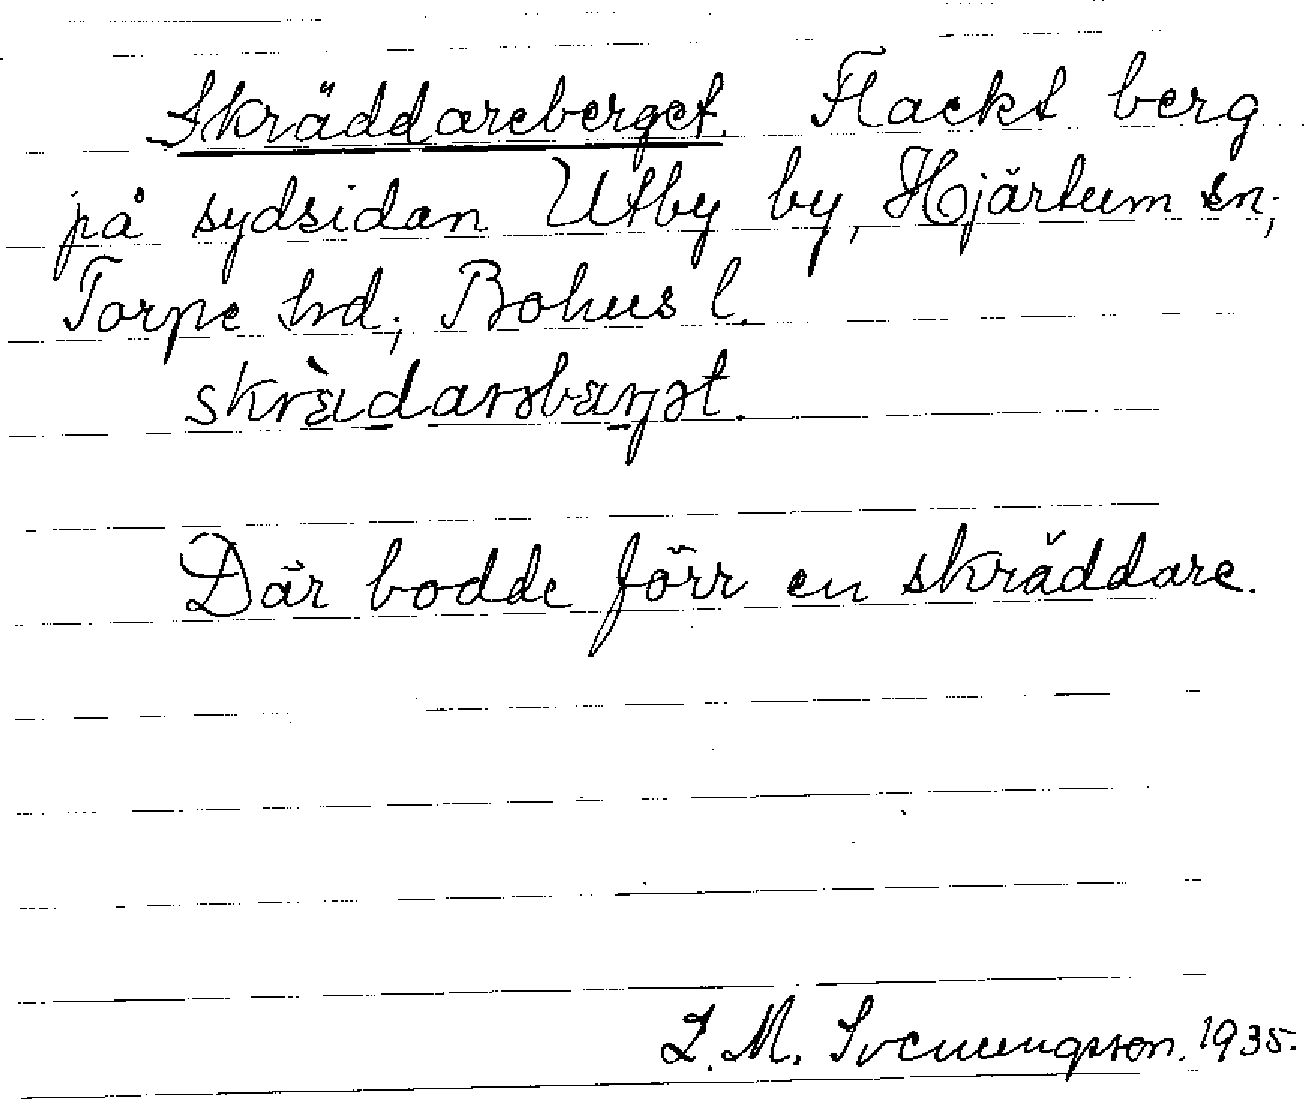 Skräddareberget. Flackt berg
på sydsidan Utby by, Hjärtum sn;
Torpe hrd; Bohus l.
skrὰdarəbærjət.
Där bodde förr en skräddare.
L. M. Svenungsson. 1935.